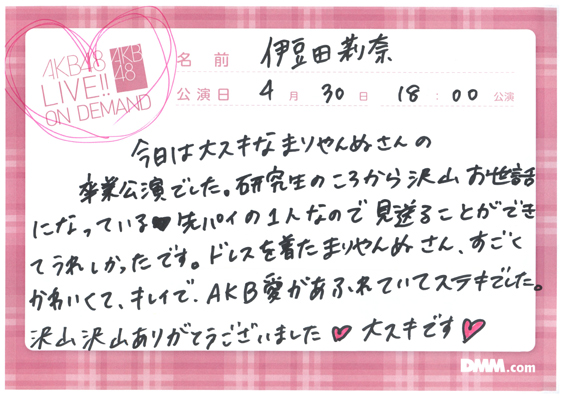 AKB48
LIVE!!
ON DEMAND
AKB
48
名前 伊豆田莉奈
公演日 4月30日 18:00公演
今日は大スキなまりやんぬさんの
卒業公演でした。研究生のころから沢山お世話
になっている♥先パイの1人なので見送ることができ
てうれしかったです。ドレスを着たまりやんぬさん、すごく
かわいくて、キレイで、AKB愛があふれていてステキでした。
沢山沢山ありがとうございました♥大スキです♥
DMM.com